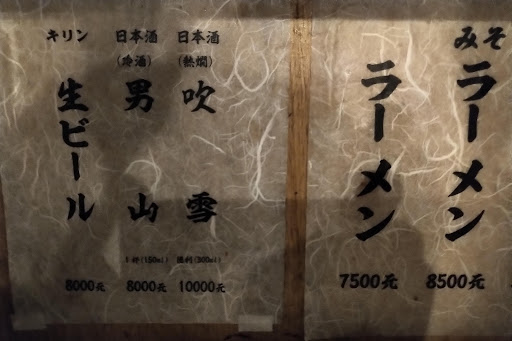 みそ
ラーメン
8500元
ラーメン
7500元
日本酒
(熱燗)
吹雪
徳利(300ml)
10000元
日本酒
(冷酒)
男山
1杯(150ml)
8000元
キリン
生ビール
8000元